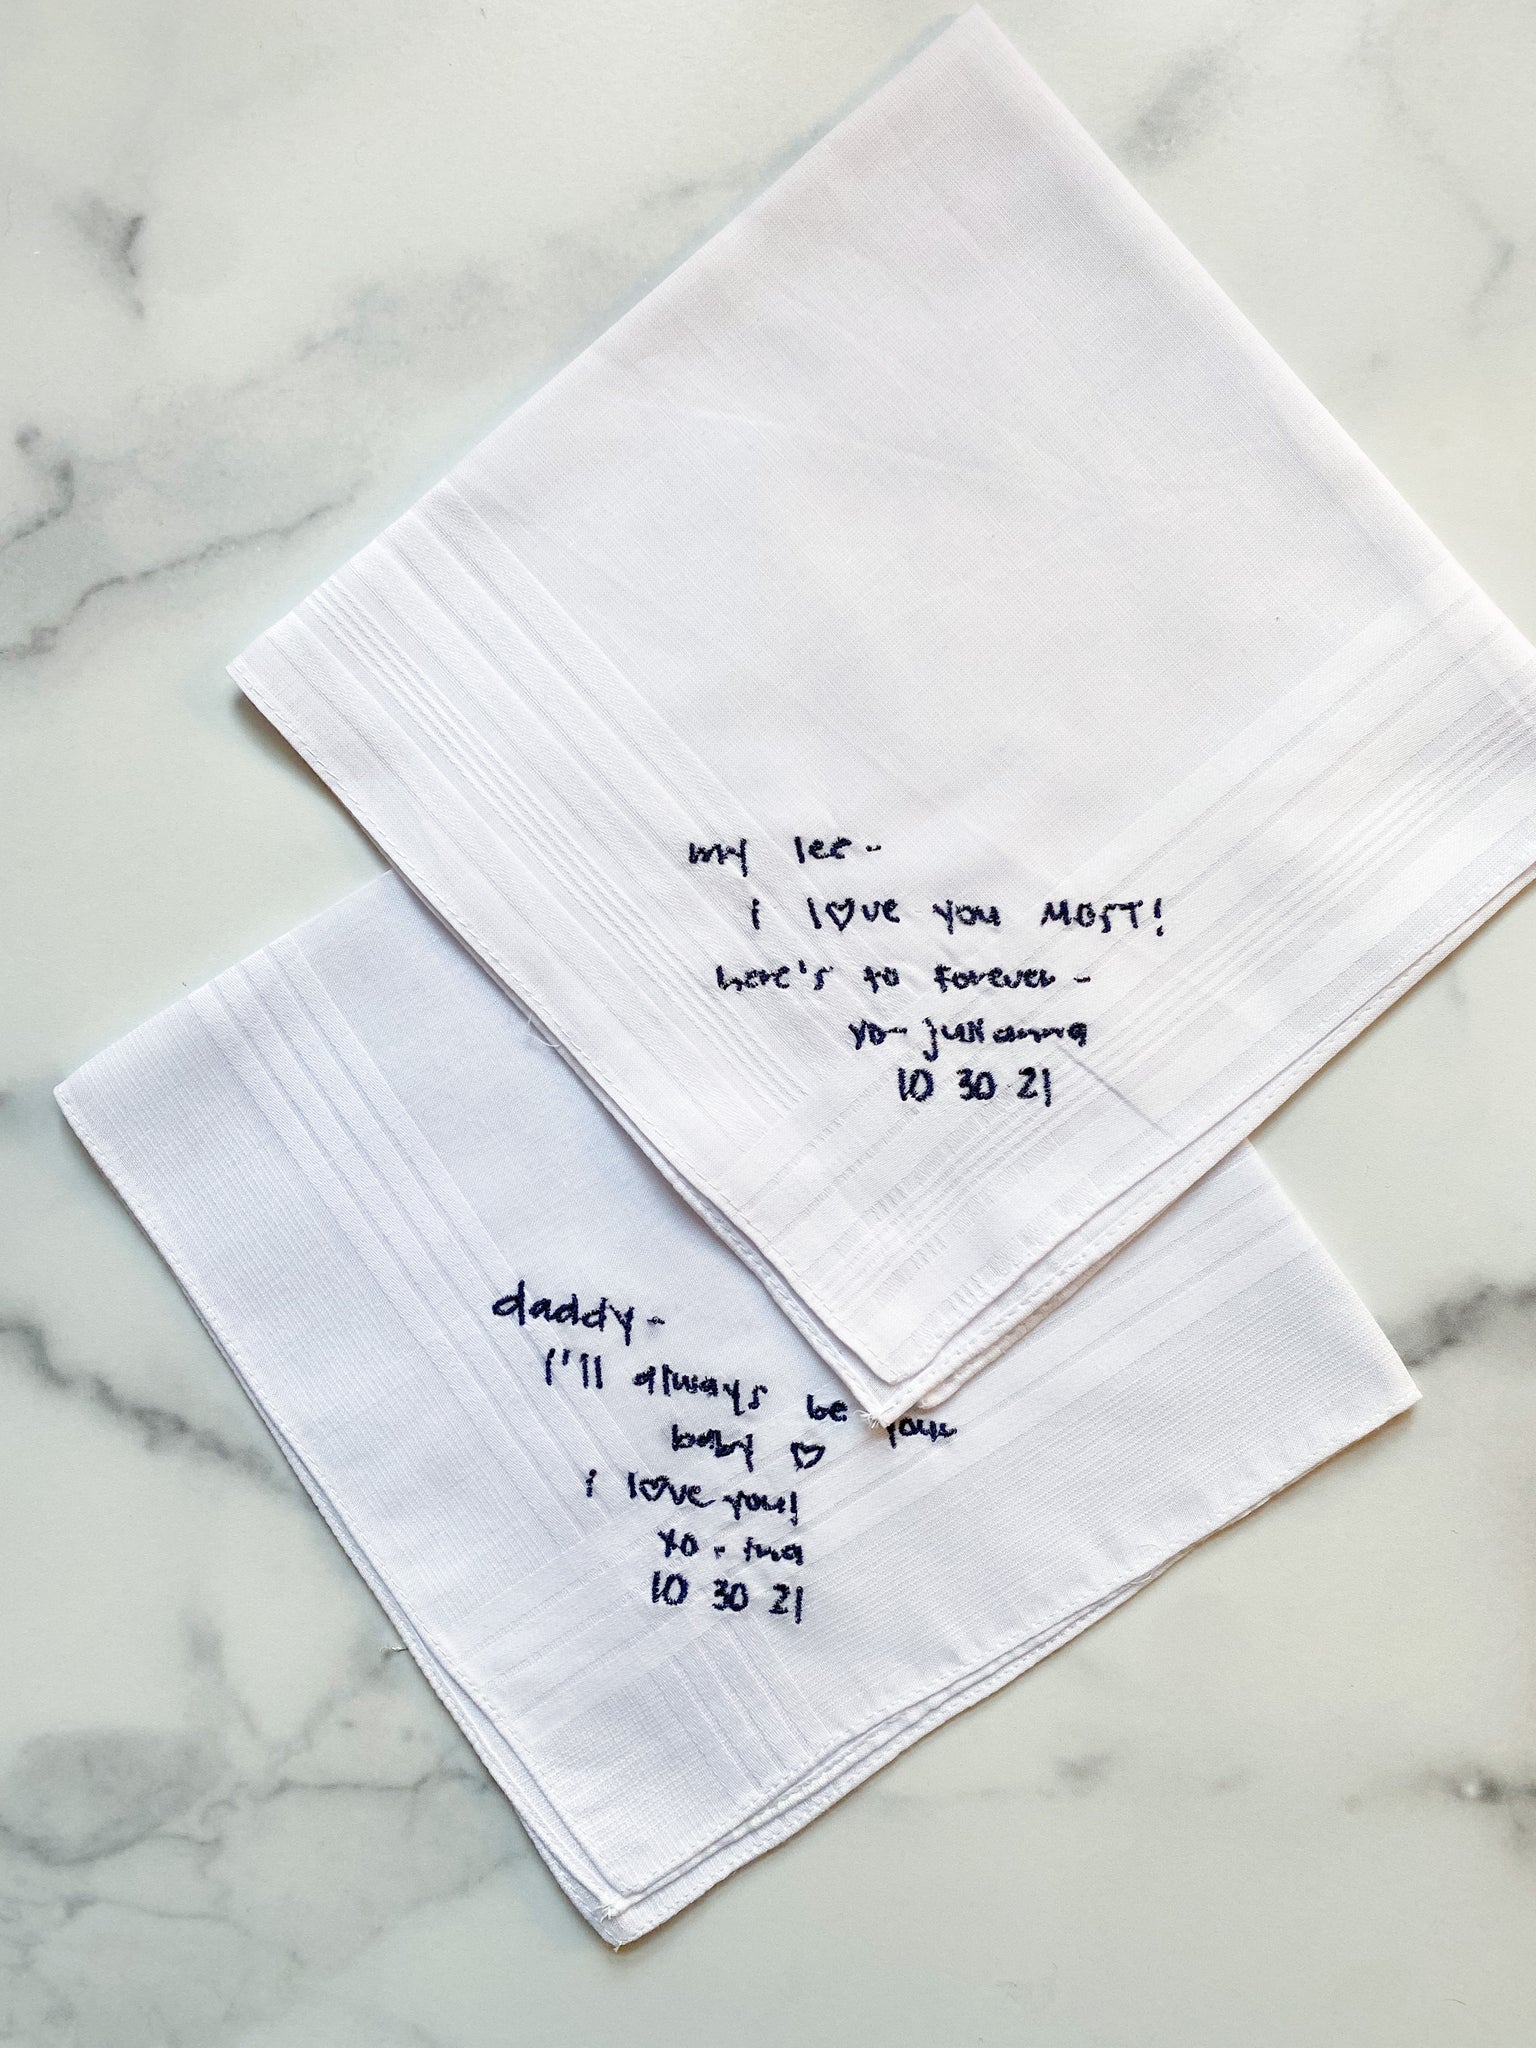 my lee-
i l♡ve you MOST!
here's to forever-
xo- julianna
10 30 21
daddy-
I'll always be your
baby ♡
i l♡ve you!
xo -
10 30 21